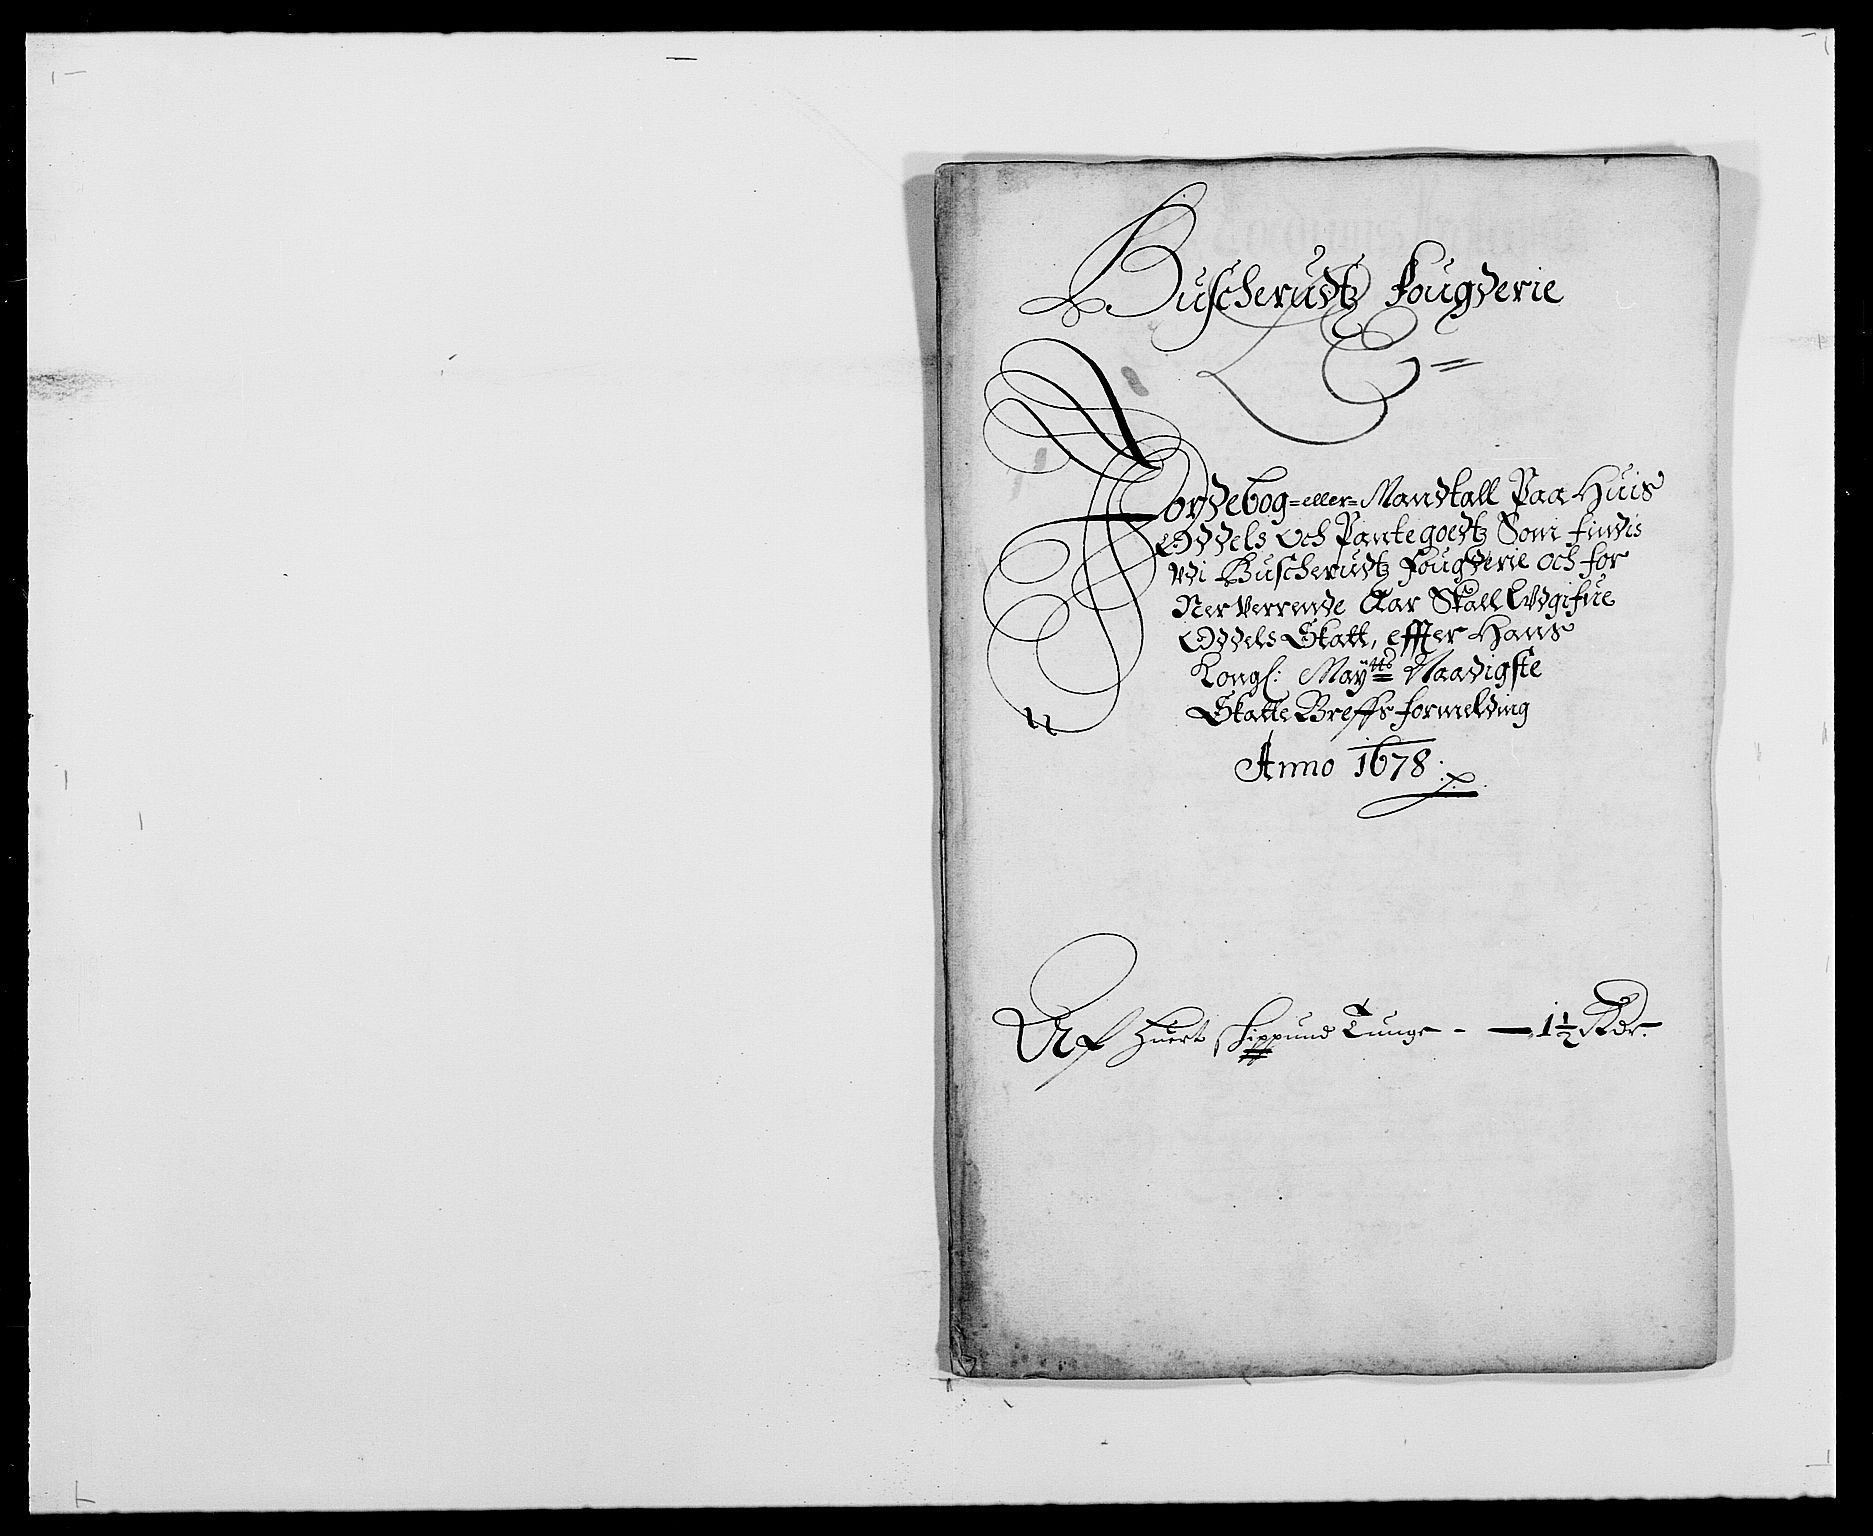 Buscherudtz Fougderie
Jordebog =eller= Mandtall Paa Huis
Oddels Och Pantegoedtz Som findis
Vdi Buscherudtz Fougderie Och for
Nerverrende Aar Skall Vdgifue
Oddels Skatt, effter Hans
Kongl: Maytts Naadigste
Skatte Breffs formelding
Anno 1678
Af Huert Skippund Tunge - — 1½ Rdr.